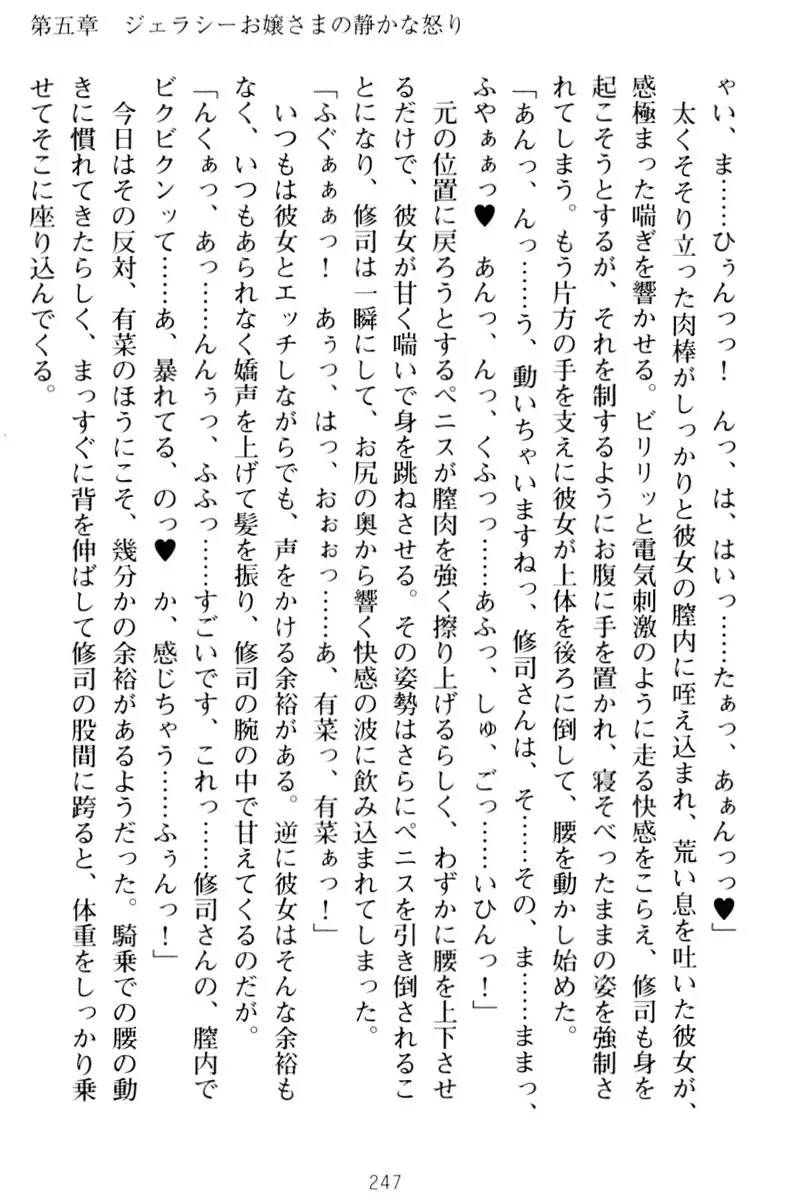 第五章　ジェラシーお嬢さまの静かな怒り
ゃい、ま……ひぅんっっ！　んっ、は、はいっ……たぁっ、あぁんっっ♥」
　太くそそり立った肉棒がしっかりと彼女の膣内に咥え込まれ、荒い息を吐いた彼女が、
感極まった喘ぎを響かせる。ビリリッと電気刺激のように走る快感をこらえ、修司も身を
起こそうとするが、それを制するようにお腹に手を置かれ、寝そべったままの姿を強制さ
れてしまう。もう片方の手を支えに彼女が上体を後ろに倒して、腰を動かし始めた。
「あんっ、んっ……う、動いちゃいますねっ、修司さんは、そ……その、ま……ままっ、
ふやぁぁっ♥　あんっ、んっ、くふっっ……あふっ、しゅ、ごっ……いひんっ！」
　元の位置に戻ろうとするペニスが膣肉を強く擦り上げるらしく、わずかに腰を上下させ
るだけで、彼女が甘く喘いで身を跳ねさせる。その姿勢はさらにペニスを引き倒されるこ
とになり、修司は一瞬にして、お尻の奥から響く快感の波に飲み込まれてしまった。
「ふぐぁぁぁっ！　あぅっ、はっ、おぉぉっ……あ、有菜っ、有菜ぁっ！」
　いつもは彼女とエッチしながらでも、声をかける余裕がある。逆に彼女はそんな余裕も
なく、いつもあられなく嬌声を上げて髪を振り、修司の腕の中で甘えてくるのだが。
「んくぁっ、あっ……んんぅっ、ふふっ……すごいです、これっ……修司さんの、膣内で
ビクビクンッて……あ、暴れてる、のっ♥　か、感じちゃう……ふぅんっ！」
　今日はその反対、有菜のほうにこそ、幾分かの余裕があるようだった。騎乗での腰の動
きに慣れてきたらしく、まっすぐに背を伸ばして修司の股間に跨ると、体重をしっかり乗
せてそこに座り込んでくる。
247